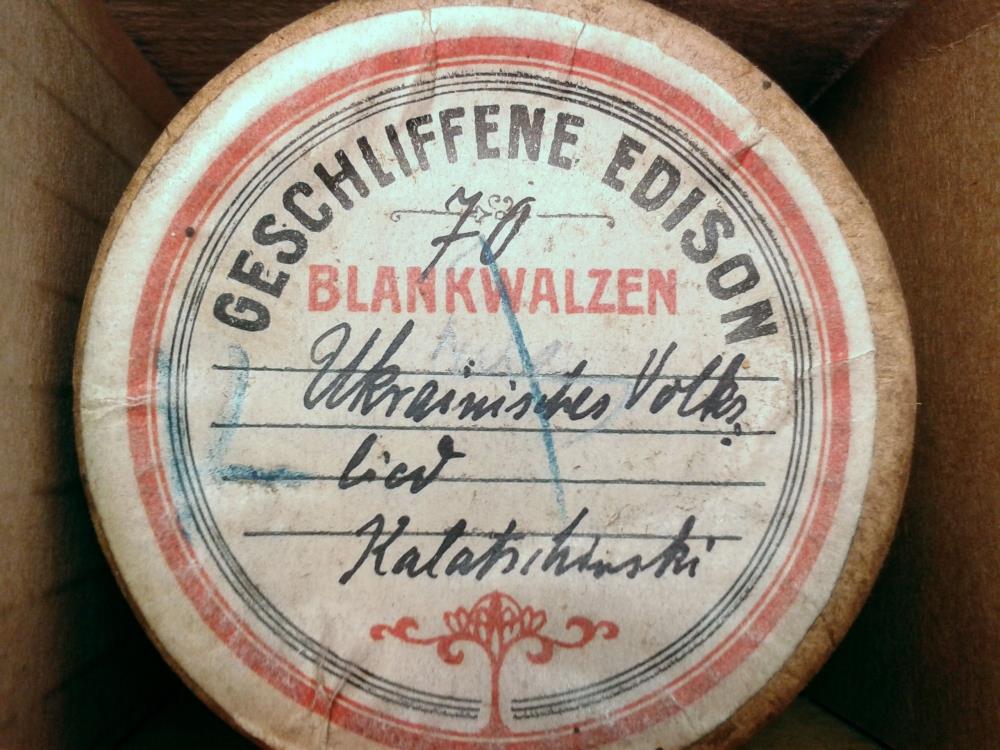 GESCHLIFFENE EDISON
BLANKWALZEN
Ukrainisches Volks-
lied
Kalatschinski